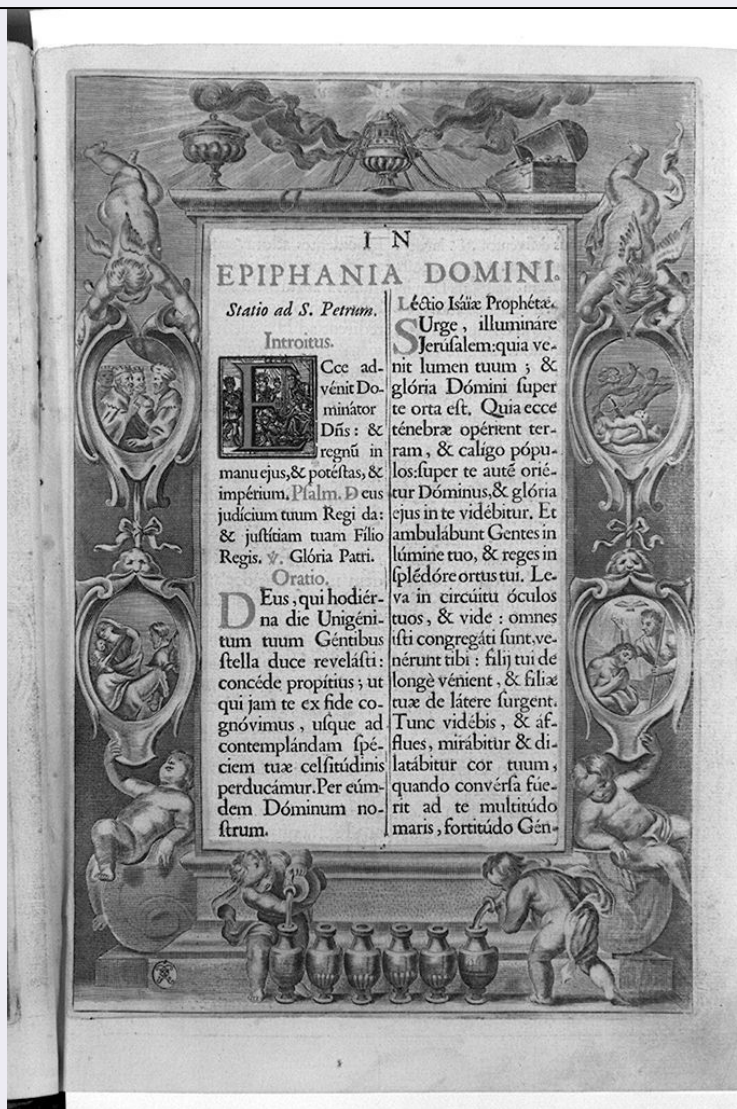 IN
EPIPHANIA DOMINI.
Statio ad S. Petrum.
Introitus.
ECce ad-
vénit Do-
minátor
Dñs : &
regnũ in
manu ejus, & potéstas, &
impérium. Psalm. Deus
judícium tuum Regi da:
& justítiam tuam Fílio
Regis. ℣. Glória Patri.
Oratio.
DEus, qui hodiér-
na die Unigéni-
tum tuum Géntibus
stella duce revelásti:
concéde propítius; ut
qui jam te ex fide co-
gnóvimus, usque ad
contemplándam spé-
ciem tuæ celsitúdinis
perducámur. Per eúm-
dem Dóminum no-
strum.
Léctio Isáiæ Prophétæ.
SUrge, illumináre
Jerúsalem: quia ve-
nit lumen tuum ; &
glória Dómini super
te orta est. Quia ecce
ténebræ opérient ter-
ram, & calígo pópu-
los: super te autẽ orié-
tur Dóminus, & glória
ejus in te vidébitur. Et
ambulábunt Gentes in
lúmine tuo, & reges in
splẽdóre ortus tui. Le-
va in circúitu óculos
tuos, & vide : omnes
isti congregáti sunt, ve-
nérunt tibi : filij tui de
longè vénient, & fíliæ
tuæ de látere surgent.
Tunc vidébis, & áf-
flues, mirábitur & di-
latábitur cor tuum,
quando convérsa fúe-
rit ad te multitúdo
maris, fortitúdo Gén-